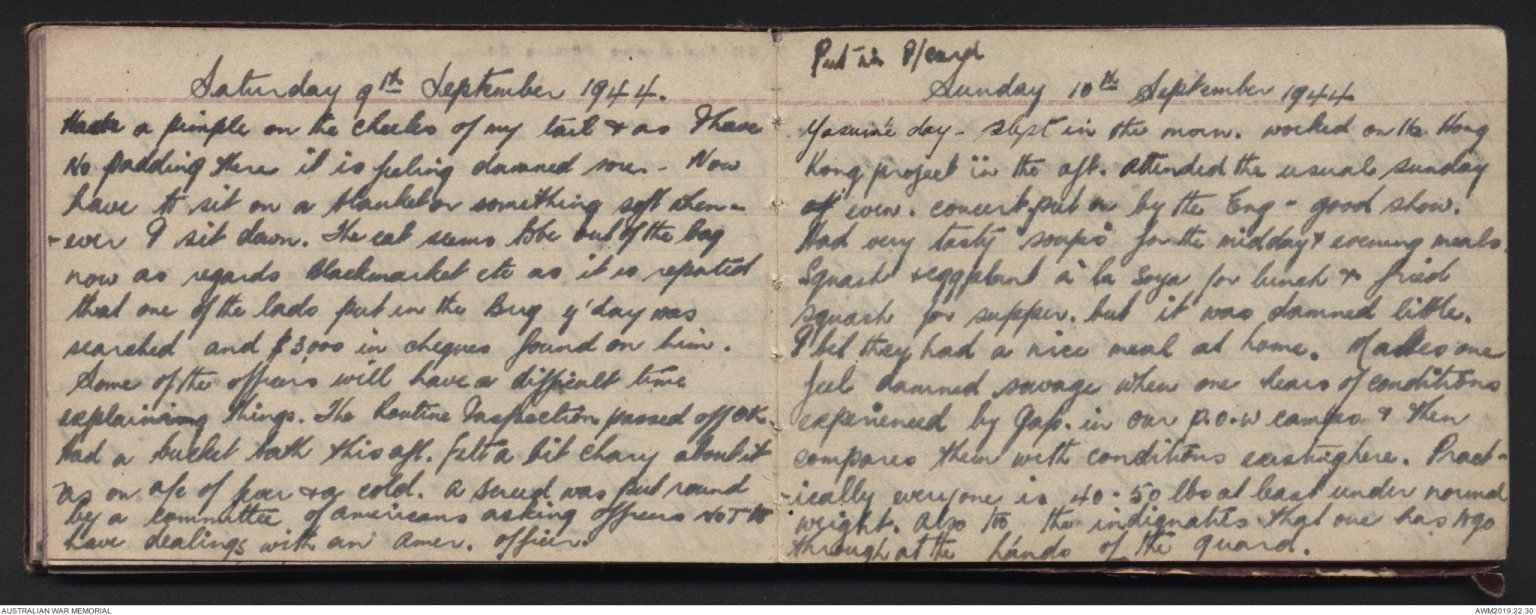 Saturday 9th September 1944.
Have a pimple on the cheeks of my tail & as I have
No padding there it is feeling damned sore. - Now
have to sit on a blanket or something soft when-
-ever I sit down. The cat seems to be out of the bag
now as regards blackmarket etc as it is reported
that one of the lads put in the Brig y'day was
searched and $3,000 in cheques found on him.
Some of the officers will have a difficult time
explaining things. The Routine Inspection passed off OK.
Had a bucket bath this aft. felt a bit chary about it
as on a/c of fever & a cold. A screed was put round
by a committee of americans asking officers NOT to
have dealings with an Amer. officer.
Put in P/card
Sunday 10th September 1944
Yasume day - slept in the morn. worked on the Hong
Kong project in the aft. attended the usual sunday
even. concert put on by the Eng - good show.
Had very tasty "soups" for the midday & evening meals.
Squash & eggplant a la Soya for lunch & fried
squash for supper. but it was damned little.
I bet they had a nice meal at home. Makes one
feel damned savage when one hears of conditions
experienced by Japs. in our p.o.w camps & then
compares them with conditions existing here. Pract-
-ically everyone is 40-50 lbs at least under normal
weight. Also too the indignaties that one has to go
through at the hands of the guard.
AUSTRALIAN WAR MEMORIAL
AWM2019.22.30